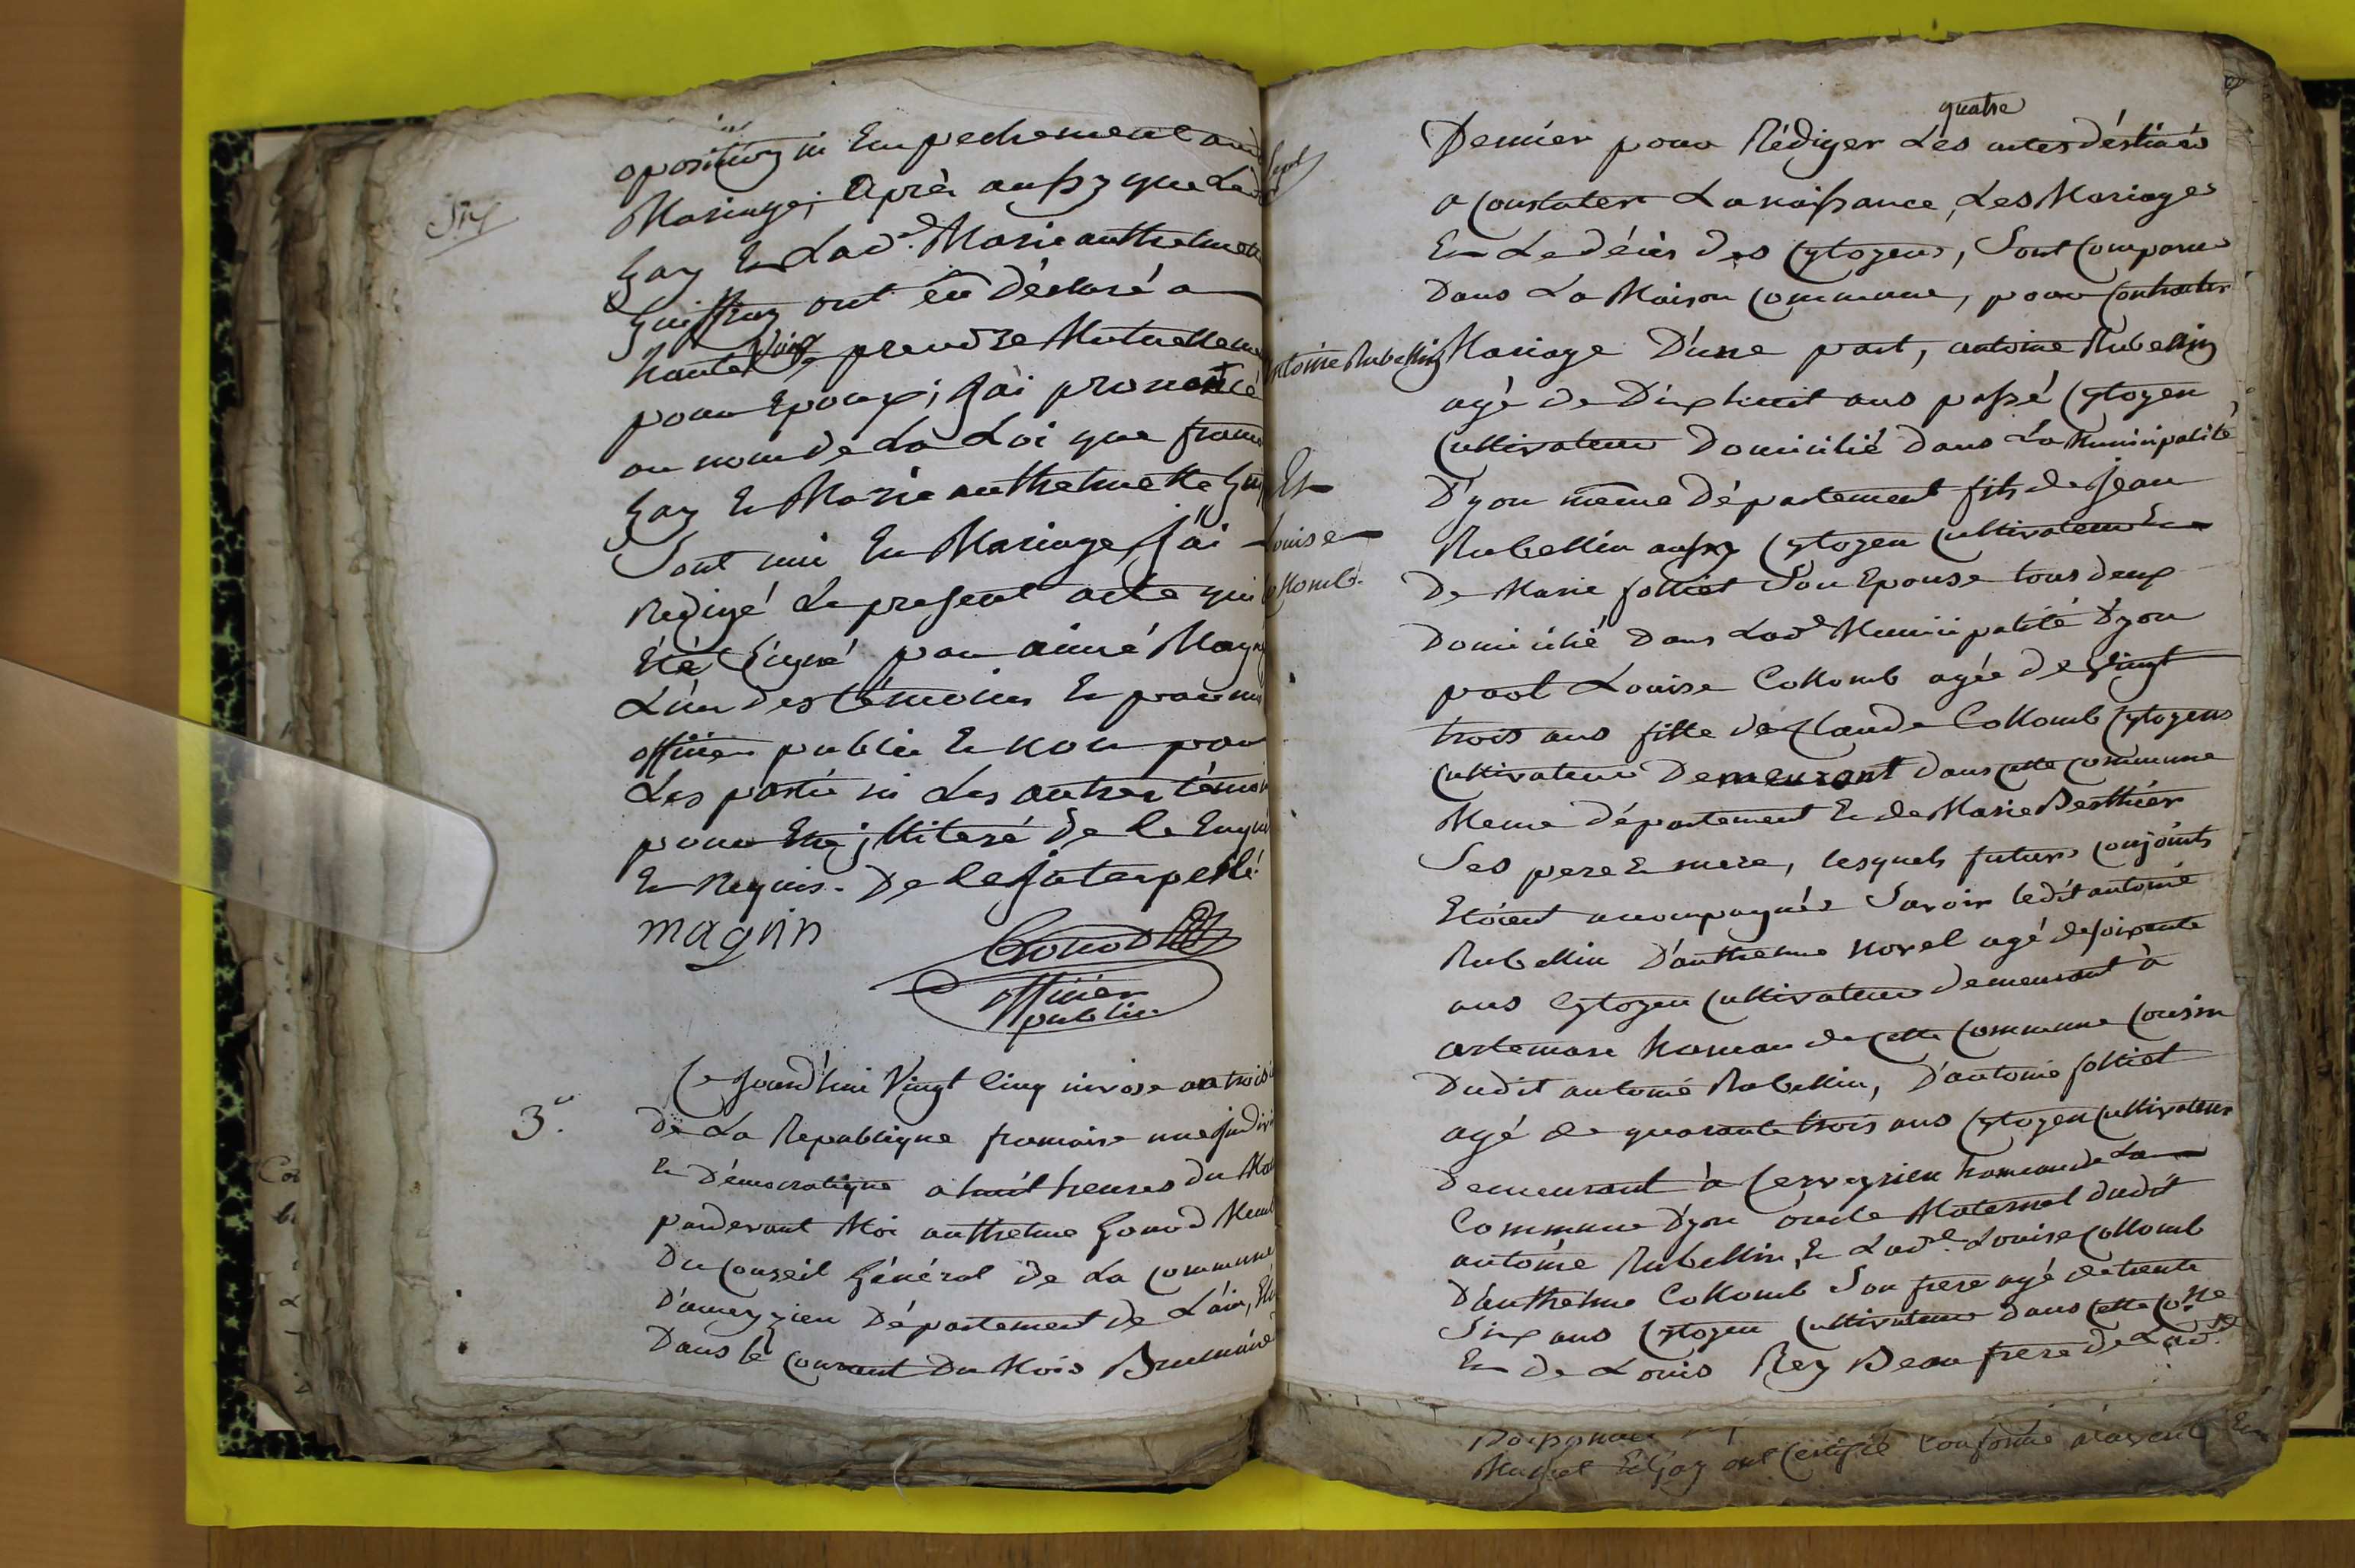 opositions ni Empechement aud
Mariage; Après aussy que Led
Gay Et Lad.e Marie anthelmette
Guiffray ont eu Déclaré a
haute Voix prendre Mutuelleme
pour Epoux; J'ai prononcé
au nom de La Loi que
Gay Et Marie anthelmette Gui
Sont uni En Mariage, J'ai
Redigé Le present acte qui
Eté Signé par aimé Magn
L'un des témoins Et par moi
officier public Et non par
Les partie ni Les autres témoi
pour Etre illiteré de Ce Enquis
Et Requis. De Ce Jnterpellé
magnin
officier
public
3.e
Ce Jourd'hui Vingt Cinq nivose an trois
De La Republique francaise une Jndivi
Et Démocratique a huit heures du Ma
pardevant Moi anthelme Gonod Memb
Du Conseil Général de La Commune
D'ameyzieu Département de L'ain, Elu
Dans le Courant Du Mois Brumaire
quatre
Dernier pour Rédiger Les actes déstinés
a Constater La naissance, Les Mariages
Et Le décès des Cytoyens, Sont Comparus
Dans La Maison Commune, pour Contracter
Mariage D'une part, antoine Rubellin
agé de Dix huit ans passé Cytoyen
Cultivateur Domicilié Dans La Municipalité
D'yon même Département fils de Jean
Rubellin aussy Cytoyen Cultivateur Et
De Marie folliet Son Epouse tous deux
Domicilié Dans Lad.e Municipalité D'yon
part Louise Collomb agée de Vingt
trois ans fille de Claude Collomb Cytoyens
Cultivateur Demeurant dans cette Commune
Meme département Et de Marie Berthier
Ses pere Et mere, lesquels futurs conjoints
Etoient accompagnés Savoir ledit antoine
Rubellin D'anthelme Novel agé de soixante
ans Cytoyen Cultivateur demeurant à
artemare hameau de cette Commune Cousin
Dudit antoine Rubellin, D'antoine folliet
agé de quarante trois ans Cytoyen Cultivateur
Demeurant à Cerveyrieu hameau de La
Commune D'yon oncle Maternel dudit
antoine Rubellin, Et Lad.e Louise Collomb
D'anthelme Collomb Son frere agé de trente
Six ans Cytoyen Cultivateur dans cette Co.ne
Et de Louis Rey Beau frere de Lad.e
antoine Rubellin
Et
Louise
Collomb.